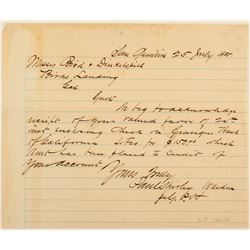 San Quentin 25 July 1885
Messrs Bird & Dinkelspiel
Birds Landing
Cal
Gents
We beg to acknowledge
receipt of your valued favor of 24th
inst, enclosing Check on Grangers Bank
of California for $150.00 which
amt has been placed to credit of
Your Account
Yours Truly
Paul Shirley Warden